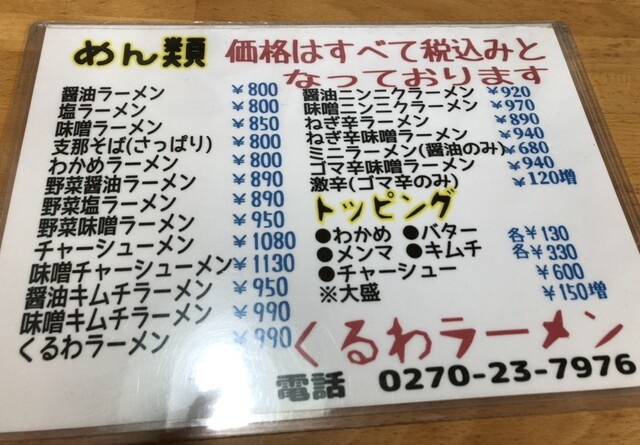 めん類
価格はすべて税込みと
なっております
醤油ラーメン ¥800
塩ラーメン ¥800
味噌ラーメン ¥850
支那そば(さっぱり) ¥800
わかめラーメン ¥800
野菜醤油ラーメン ¥890
野菜塩ラーメン ¥890
野菜味噌ラーメン ¥950
チャーシューメン ¥1080
味噌チャーシューメン ¥1130
醤油キムチラーメン ¥950
味噌キムチラーメン ¥990
くるわラーメン ¥990
醤油ニンニクラーメン ¥920
味噌ニンニクラーメン ¥970
ねぎ辛ラーメン ¥890
ねぎ辛味噌ラーメン ¥940
ミニラーメン(醤油のみ) ¥680
ゴマ辛味噌ラーメン ¥940
激辛(ゴマ辛のみ) ¥120増
トッピング
●わかめ ●バター 各¥130
●メンマ ●キムチ 各¥330
●チャーシュー ¥600
※大盛 ¥150増
くるわラーメン
電話 0270-23-7976